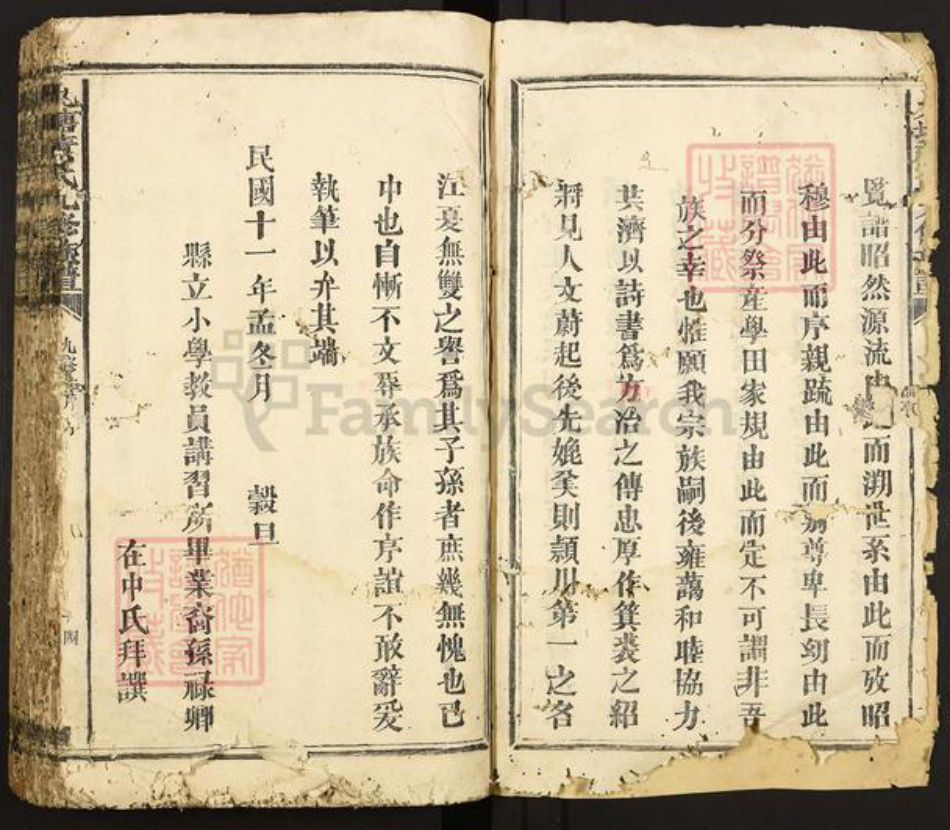 覽譜昭然源流由此而溯世系由此而攷昭
穆由此而序親疏由此而別尊卑長幼由此
而分祭產學田家規由此而定不可謂非吾
族之幸也惟願我宗族嗣後雍藹和睦協力
共濟以詩書爲方冶之傳忠厚作箕裘之紹
將見人文蔚起後先媲美則潁川第一之名
江夏無雙之譽爲其子孫者庶幾無愧也已
中也自慚不文辱承族命作序誼不敢辭爰
執筆以弁其端
民國十一年孟冬月 穀旦
縣立小學教員講習所畢業裔孫祿卿
在中氏拜譔
九修族譜
四
FamilySearch